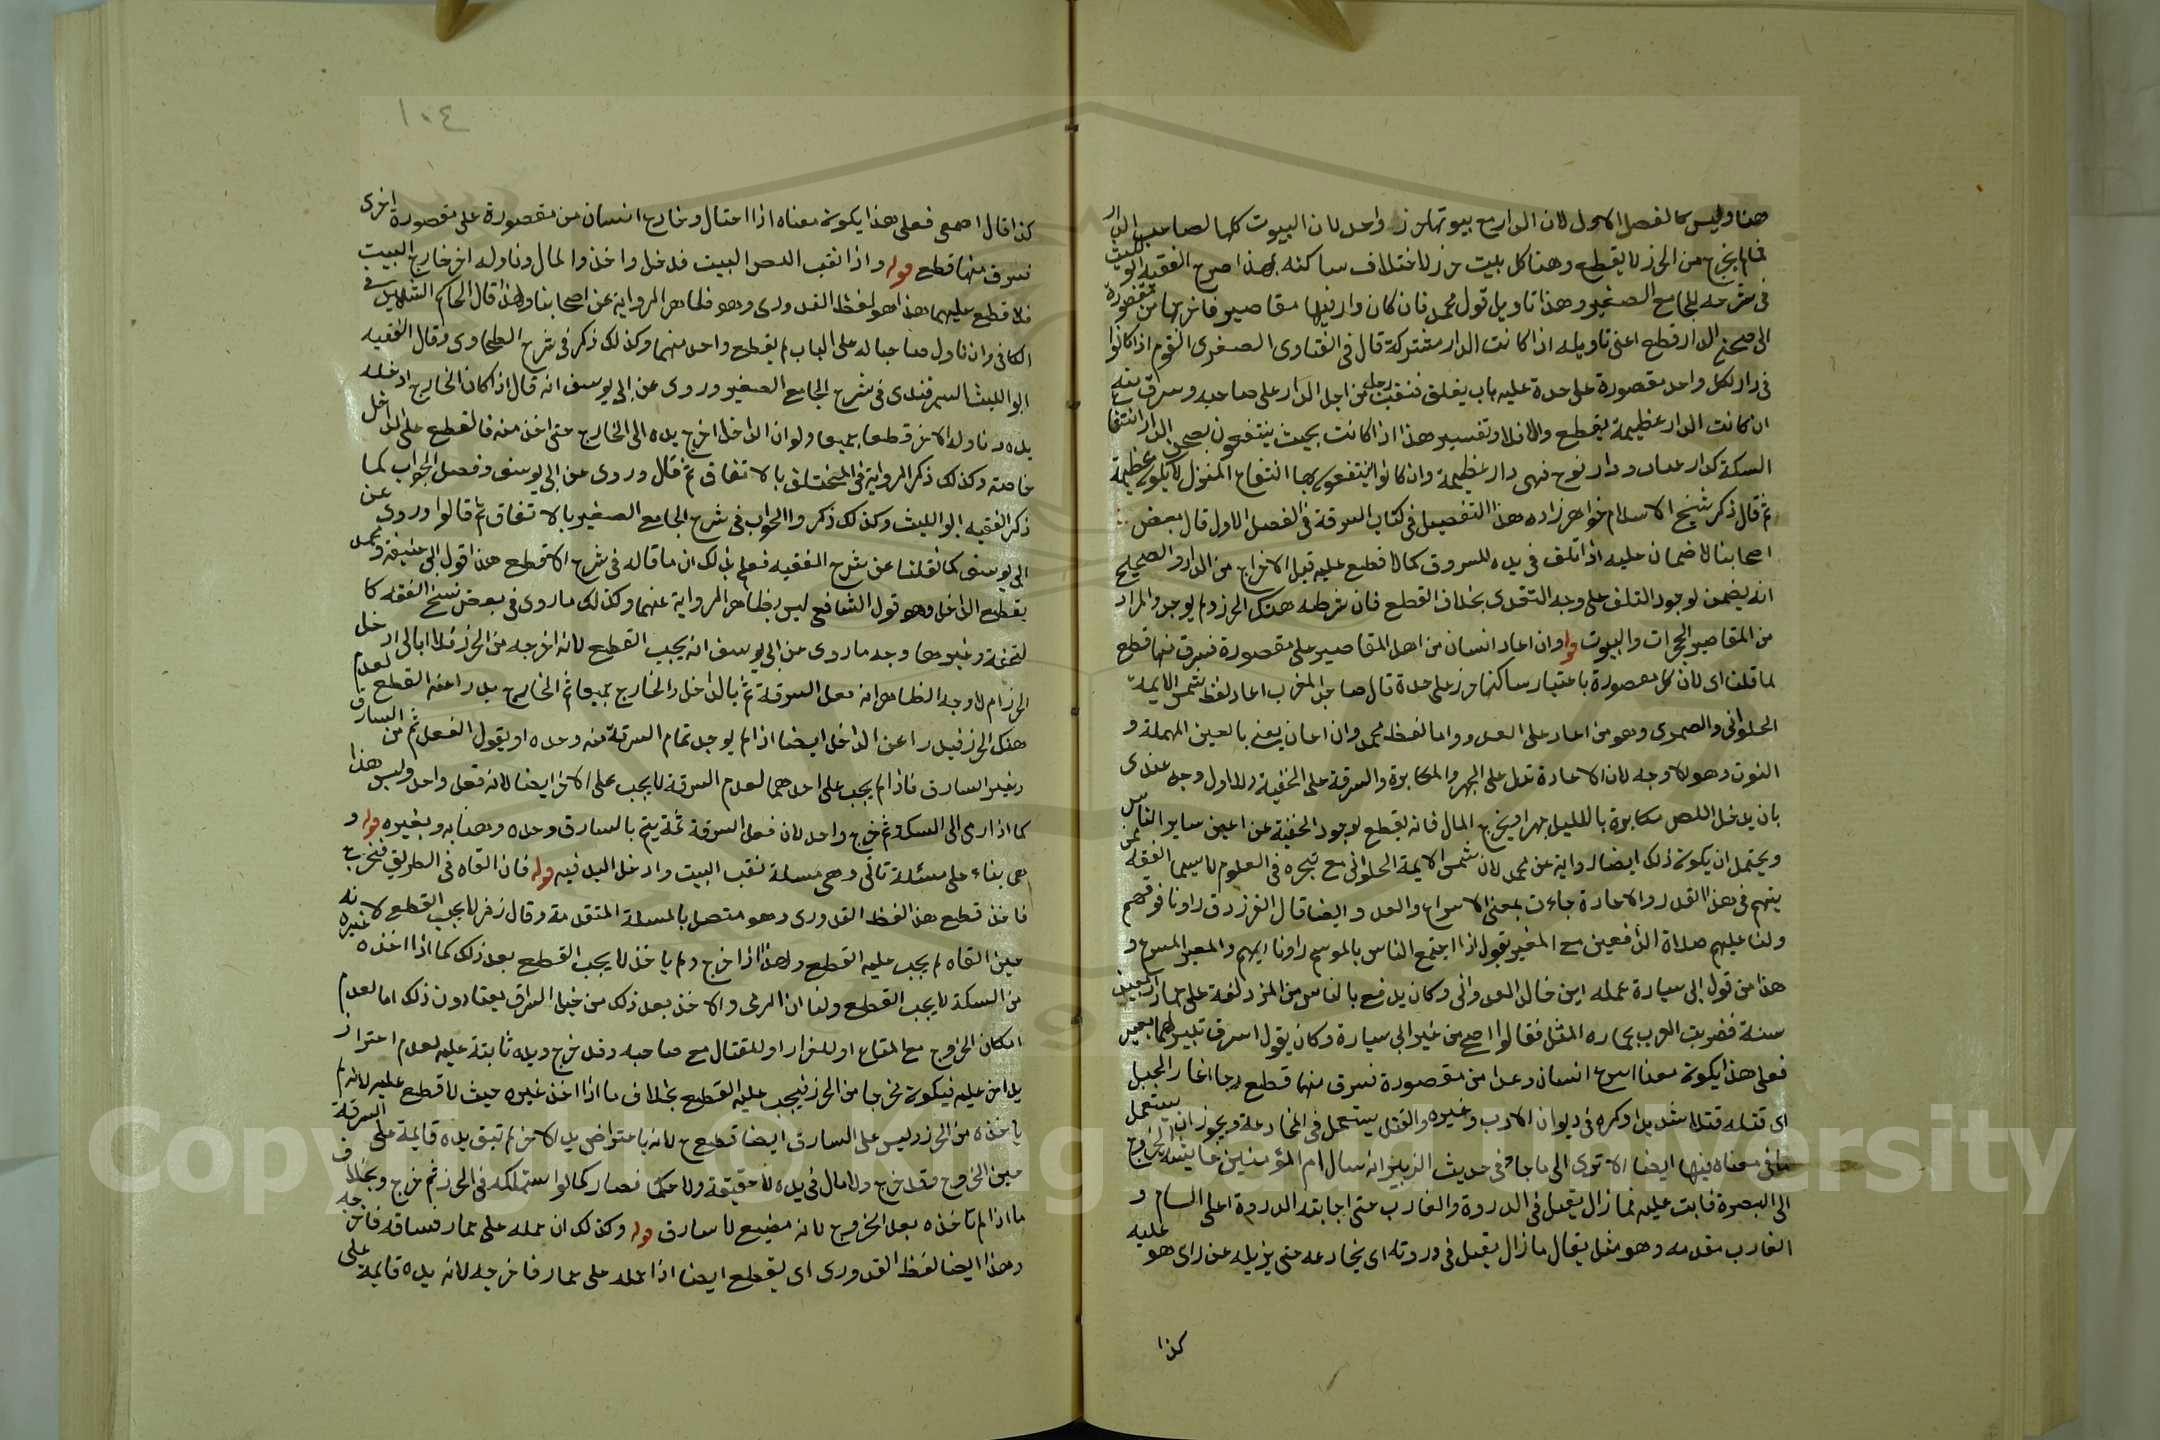 هنا وليس كالفصل الاول لان الدار مع بيوتها حرز واحد لان البيوت كلها لصاحب الدار
فما لم يخرج من الحرز لا يقطع وهنا كل بيت حرز لاختلاف ساكنه بهذا صرح الفقيه ابو الليث
في شرحه للجامع الصغير وهذا تاويل قول محمد فان كان دار فيها مقاصير فاخرجها من مقصورة
الى صحن الدار قطع اعنى تاويله اذا كانت الدار مشتركة قال في الفتاوى الصغرى القوم اذا كانوا
في دار لكل واحد مقصورة على حدة عليه باب يغلق فنقب رجل من اجل الدار على صاحبه وسرق منه
ان كانت الدار عظيمة يقطع والا فلا وتفسير هذا اذا كانت بحيث ينتفعون بصحن الدار انتفاع
السكة كدار عباد ودار نوح فهى دار عظيمة وان كانوا ينتفعون بها انتفاع المنزل لا يكون عظيمة
ثم قال ذكر شيخ الاسلام خواهر زاده هذا التفصيل في كتاب السرقة في الفصل الاول قال بعض
اصحابنا لا ضمان عليه اذا تلف في يده المسروق كما لا قطع عليه قبل الاخراج من الدار والصحيح
انه يضمن لوجود التلف على وجه التعدى بخلاف القطع فان شرطه هتك الحرز ولم يوجد والمراد
من المقاصير الحجرات والبيوت قوله وان اعار انسان من اهل المقاصير على مقصورة فسرق منها قطع
لما قلنا اى لان كل مقصورة باعتبار ساكنها حرز على حدة قال صاحب المغرب اعار لفظ شمس الايمة
الحلوانى والصمرى وهو من اعار على العدو واما لفظ محمد وان اعان يعنى بالعين المهملة و
النون وهو الاوجه لان الاعارة تدل على الجهر والمكابرة والسرقة على الخفية وللاول وجه عندى
بان يدخل اللص مكابرة بالليل جهرا ويخرج المال فانه يقطع لوجود الخفية عن اعين ساير الناس
ويحتمل ان يكون ذلك ايضا رواية عن محمد لان شمس الايمة الحلوانى مع تبحره في العلوم لا سيما الفقه لمن
يتهم في هذا القدر والاعارة جاءت بمعنى الاسراع والعدو ايضا قال الفرزدق راونا فوقهم
ولنا عليهم صلاة الدافعين مع المغير يقول اذا اجتمع الناس بالموسم راونا اميرهم والمغير المسرع و
هذا من قول ابى سيارة عميلة ابن خالد العدوانى وكان يدفع بالناس من المزدلفة على حمار اربعين
سنة فضربت العرب بحماره المثل فقالوا اصح من عير ابى سيارة وكان يقول اشرق ثبير كيما نغير
فعلى هذا يكون معناه اسرع انسان وعدا من مقصورة فسرق منها قطع وجا اغار الحبل
اى فتله فتلا شديدا ذكره في ديوان الادب وغيره والفتل يستعمل في المخادعة ويجوز ان يستعمل
ما في معناه فيها ايضا الا ترى الى ما جاء في حديث الزبير انه سال ام المؤمنين عايشة الخروج
الى البصرة فابت عليه فما زال يفتل في الذروة والغارب حتى اجابته الذروة اعلى السنام و
الغارب مقدمه وهو مثل يقال ما زال يفتل في ذروته اى يخادعه حتى يزيله عن راى هو عليه
كذا
١٠٤
كذا قال اصمعى فعلى هذا يكون معناه اذا احتال وخادع انسان من مقصورة على مقصورة اخرى
فسرق منها قطع قوله واذا نقب اللص البيت فدخل واخذ المال وناوله اخر خارج البيت
فلا قطع عليهما هذا هو لفظ القدورى وهو ظاهر الرواية عن اصحابنا ولهذا قال الحاكم الشهيد في
الكافى وان ناول صاحبا له على الباب لم يقطع واحد منهما وكذلك ذكر في شرح الطحاوى وقال الفقيه
ابو الليث السمرقندى في شرح الجامع الصغير وروى عن ابى يوسف انه قال اذا كان الخارج ادخل
يده وناوله الاخر قطعا جميعا ولو ان الداخل اخرج يده الى الخارج حتى اخذ منه فالقطع على الداخل
خاصة وكذلك ذكر الرواية في المختلف بالاتفاق ثم قال وروى عن ابى يوسف وفصل الجواب كما
ذكر الفقيه ابو الليث وكذلك ذكروا الجواب في شرح الجامع الصغير بالاتفاق ثم قالوا وروى عن
ابى يوسف كما نقلنا عن شرح الفقيه فعلم بذلك ان ما قاله في شرح الاقطع هذا قول ابى حنيفة ومحمد
يقطع الداخل وهو قول الشافعى ليس بظاهر الرواية عنهما وكذلك ما روى في بعض نسخ الفقه كا
لتحفة وغيرها وجه ما روى عن ابى يوسف انه يجب القطع لانه اخرجه من الحرز فلا ابالى ادخل
الحرز ام لا وجه الظاهر انه فعل السرقة تم بالداخل والخارج جميعا ثم الخارج يدرا عنه القطع لعدم
هتك الحرز فيدرا عن الداخل ايضا اذا لم يوجد تمام السرقة منه وحده او يقول الفعل ثم من السارق
وغير السارق فاذا لم يجب على احدهما لعدم السرقة لا يجب على الاخر ايضا لانه فعل واحد وليس هذا
كما اذا رمى الى السكة ثم خرج واخذ لان فعل السرقة ثمة يتم بالسارق وحده وهنا به وبغيره قوله و
هى بناء على مسئلة تاتى وهى مسئلة نقب البيت وادخل اليد فيه قوله فان القاه في الطريق فخرج
فاخذ قطع هذا لفظ القدورى وهو متصل بالمسئلة المتقدمة وقال زفر لا يجب القطع لانه
حين القاه لم يجب عليه القطع ولهذا اذا خرج ولم ياخذ لا يجب القطع بعد ذلك كما اذا اخذه غيره
من السكة لا يجب القطع ولنا ان الرمى والاخذ بعد ذلك من حيل السراق يعتادون ذلك اما لعدم
امكان الخروج مع المتاع او للفرار او للقتال مع صاحبه وقد خرج ويده ثابتة عليه لعدم اعتراز
يد اخرى عليه فيكون مخرجا من الحرز فيجب عليه القطع بخلاف ما اذا اخذ غيره حيث لا قطع عليه لانه لم
ياخذه من الحرز وليس على السارق ايضا قطع ح لانه باعتراض يد الاخر لم تبق يده قايمة على السرقة
حين الخروج فقد خرج ولا مال في يده لا حقيقة ولا حكما فصار كما لو استهلكه في الحرز ثم خرج وبخلاف
ما اذا لم ياخذه بعد الخروج لانه مضيع لا سارق قوله وكذلك ان حمله على حمار فساقه فاخرجه
وهذا ايضا لفظ القدورى اى يقطع ايضا اذا حمله على حمار فاخرجه لانه يده قايمة على
Copyright © King Saud University